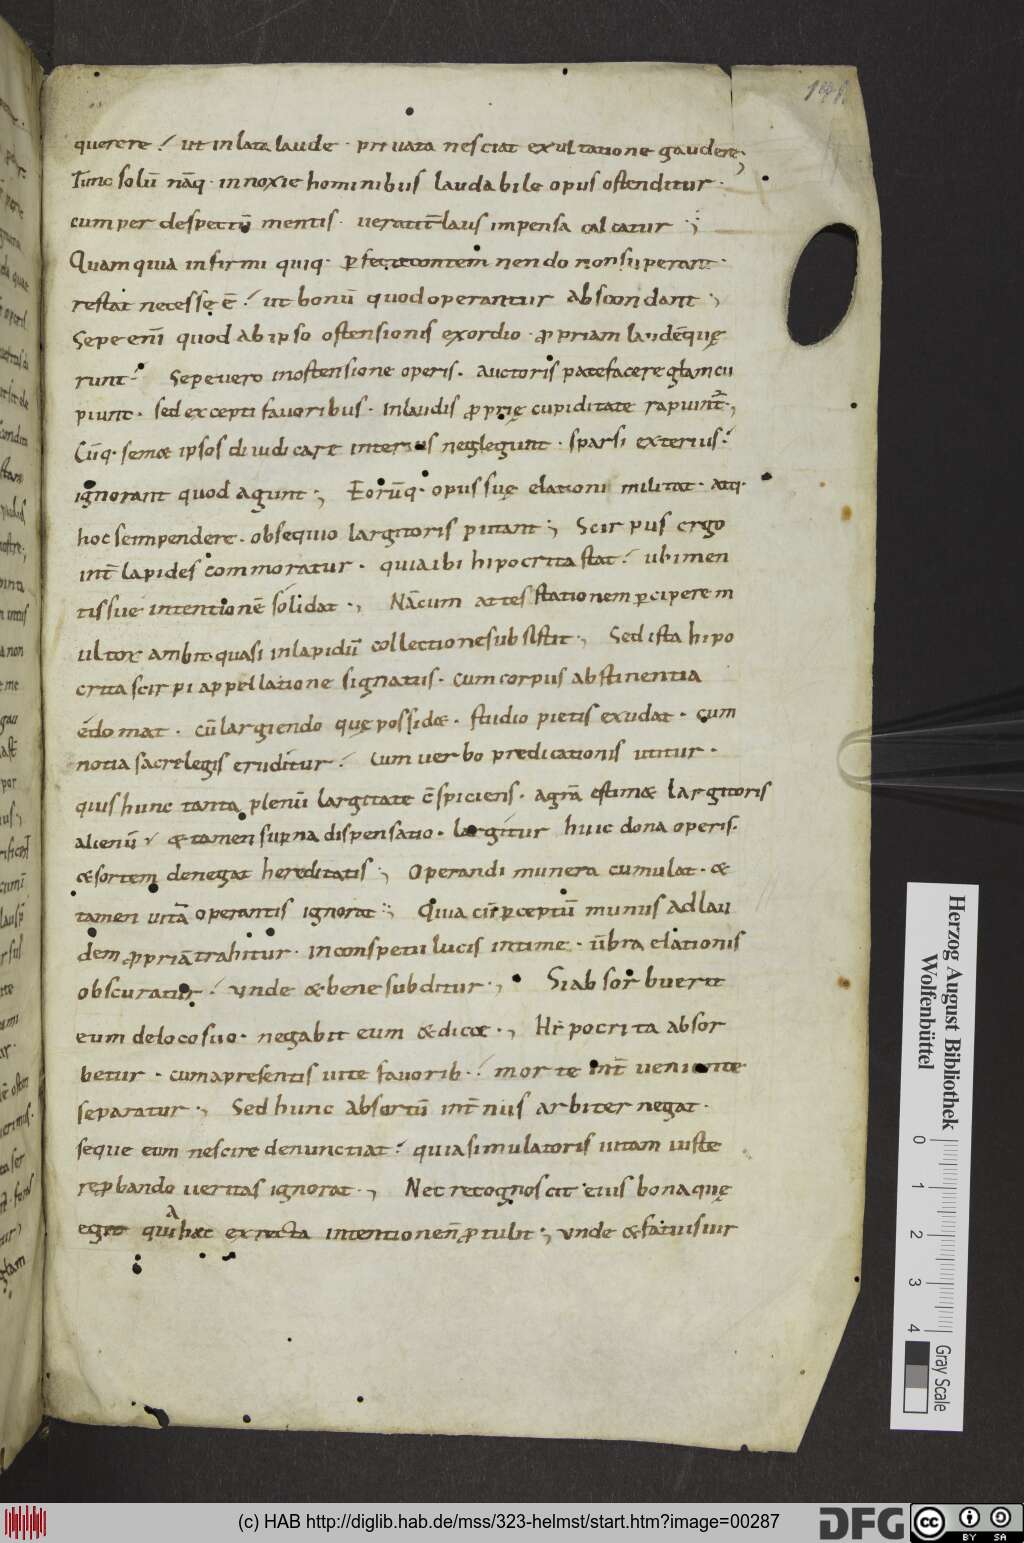 querere ⸵ ut inlata laude · priuata nesciat exultatione gaudere;
Tunc solū nāq· innoxie hominibus laudabile opus ostenditur ·
cum per despectū mentis · ueratit̄ laus impensa calcatur ;
Quam quia infirmi quiq· ꝑfecte contemnendo non superant ·
restat necesse ē ⸵ ut bonū quod operantur abscondant ;
Sepe enī quod ab ipso ostensionis exordio · ꝓpriam laudē quę
runt ⸵ Sepe uero in ostensione operis · auctoris patefacere glam cu
piunt · sed excepti fauoribus · in laudis ꝓprię cupiditate rapiunt̄ ;
Cūq· semæ ipsos diiudicare interius neglegunt · sparsi exterius ⸵
ignorant quod agunt ; Eorūq· opus suę elationi militat · atq·
hoc se impendere · obsequio largitoris putant ; Scirpus ergo
int̄ lapides commoratur · quia ibi hipocrita stat ⸵ ubi men
tis sue intentionē solidat ; Nā cum attestationem ꝑcipere m
ultor ambit · quasi in lapidū collectione subsistit ; Sed ista hipo
crita scirpi appellatione signatus · cum corpus abstinentia
edomat · cū largiendo quę possidæ · studio pietis exudat · cum
notia sacre legis eruditur ⸵ cum uerbo predicationis utitur ·
quis hunc tanta plenū largitate c̄spiciens · agrā estimæ largitoris
alienū ⸵ & tamen suꝑna dispensatio · largitur huic dona operis ·
& sortem denegat hereditatis ; Operandi munera cumulat · &
tamen uitā operantis ignorat ; Quia cū ꝑceptū munus ad lau
dem ꝓpriā trahitur · in conspetu lucis intime · ūbra elationis
obscuratur ⸵ Vnde & bene subditur ; Si absorbuerit
eum de loco suo · negabit eum & dicæ ; Hipocrita absor
betur · cum a presentis uite fauorib· ⸵ morte int̄ueniente
separatur ; Sed hunc absortū int̄nus arbiter negat ·
seque eum nescire denunctiat ⸵ quia simulatoris uitam iuste
reꝓbando ueritas ignorat ; Nec recognoscit eius bona quę
egit quia hæc ex recta intentione ñ ꝓtulit ; Vnde & fatuis uir
Herzog August Bibliothek
Wolfenbüttel
0 1 2 3 4
Gray Scale
(c) HAB http://diglib.hab.de/mss/323-helmst/start.htm?image=00287
DFG
cc BY SA